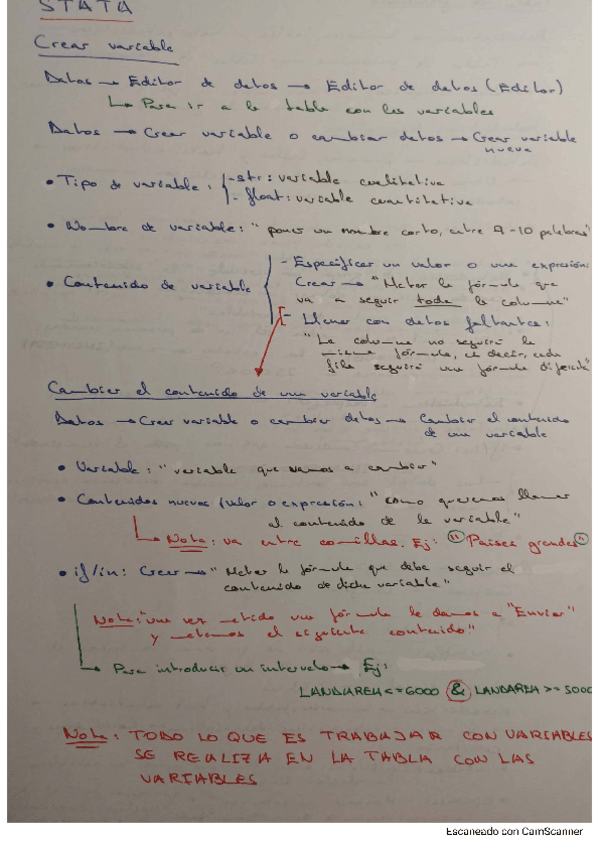 STATA
Crear variable
Datos → Editor de datos → Editor de datos (Editor)
↳ Para ir a la tabla con las variables
Datos → Crear variable o cambiar datos → Crear variable
nueva
• Tipo de variable: - str: variable cualitativa
- float: variable cuantitativa
• Nombre de variable: "poner un nombre corto, entre 9-10 palabras"
- Especificar un valor o una expresión:
• Contenido de variable Crear → "Meter la fórmula que
va a seguir toda la columna"
- Llenar con datos faltantes:
"La columna no seguirá la
misma fórmula, es decir, cada
fila seguirá una fórmula diferente"
Cambiar el contenido de una variable
Datos → Crear variable o cambiar datos → Cambiar el contenido
de una variable
• Variable: "variable que vamos a cambiar"
• Contenidos nuevos (valor o expresión: "como queremos llamar
al contenido de la variable"
↳ Nota: va entre comillas. Ej: "Paises grandes"
• if/in: Crear → "Meter la fórmula que debe seguir el
contenido de dicha variable"
Nota: "una vez metido una fórmula le damos a "Enviar"
y metemos el siguiente contenido."
↳ Para introducir un intervalo → Ej:
LANDAREA<=6000 & LANDAREA >= 5000
Nota: TODO LO QUE ES TRABAJAR CON VARIABLES
SE REALIZA EN LA TABLA CON LAS
VARIABLES
Escaneado con CamScanner